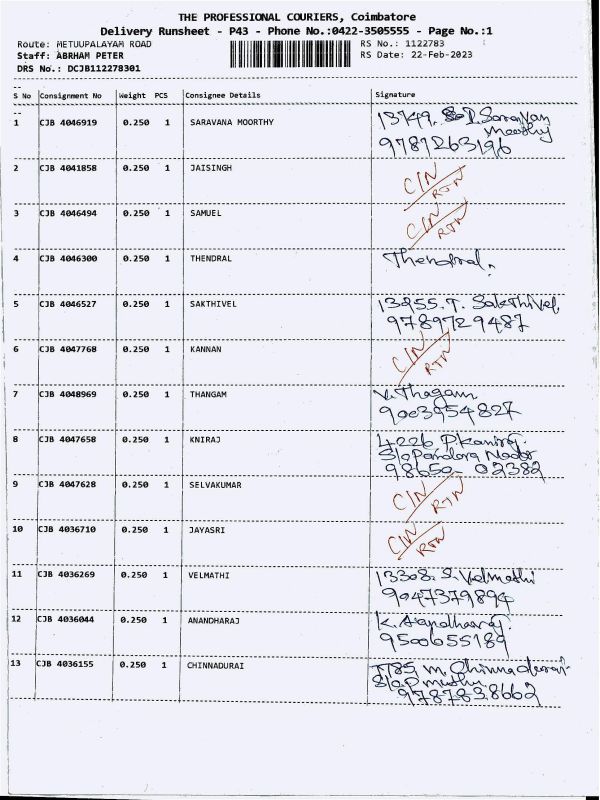 THE PROFESSIONAL COURIERS, Coimbatore
Delivery Runsheet - P43 - Phone No.:0422-3505555 - Page No.:1
Route: METUUPALAYAM ROAD RS No.: 1122783
Staff: ABRHAM PETER RS Date: 22-Feb-2023
DRS No.: DCJB112278301
S No Consignment No Weight PCS Consignee Details Signature
1 CJB 4046919 0.250 1 SARAVANA MOORTHY 13749. Saravan
Moorthy
9787263196
2 CJB 4041858 0.250 1 JAISINGH C/N RTN
3 CJB 4046494 0.250 1 SAMUEL C/N RTN
4 CJB 4046300 0.250 1 THENDRAL Thendral.
5 CJB 4046527 0.250 1 SAKTHIVEL 13955. T. Sakthivel
9789729487
6 CJB 4047768 0.250 1 KANNAN C/N RTN
7 CJB 4048969 0.250 1 THANGAM V. Thagam
9003954827
8 CJB 4047658 0.250 1 KNIRAJ 4226 P.kaniraj.
S/o Pandara Nadar
98650- 02382
9 CJB 4047628 0.250 1 SELVAKUMAR C/N RTN
10 CJB 4036710 0.250 1 JAYASRI C/N RTN
11 CJB 4036269 0.250 1 VELMATHI 13308. S. Velmathi
9047379894
12 CJB 4036044 0.250 1 ANANDHARAJ K. Anandharaj.
9500655189
13 CJB 4036155 0.250 1 CHINNADURAI 7785 m. Chinnadurai
S/o P muthu
9787838662